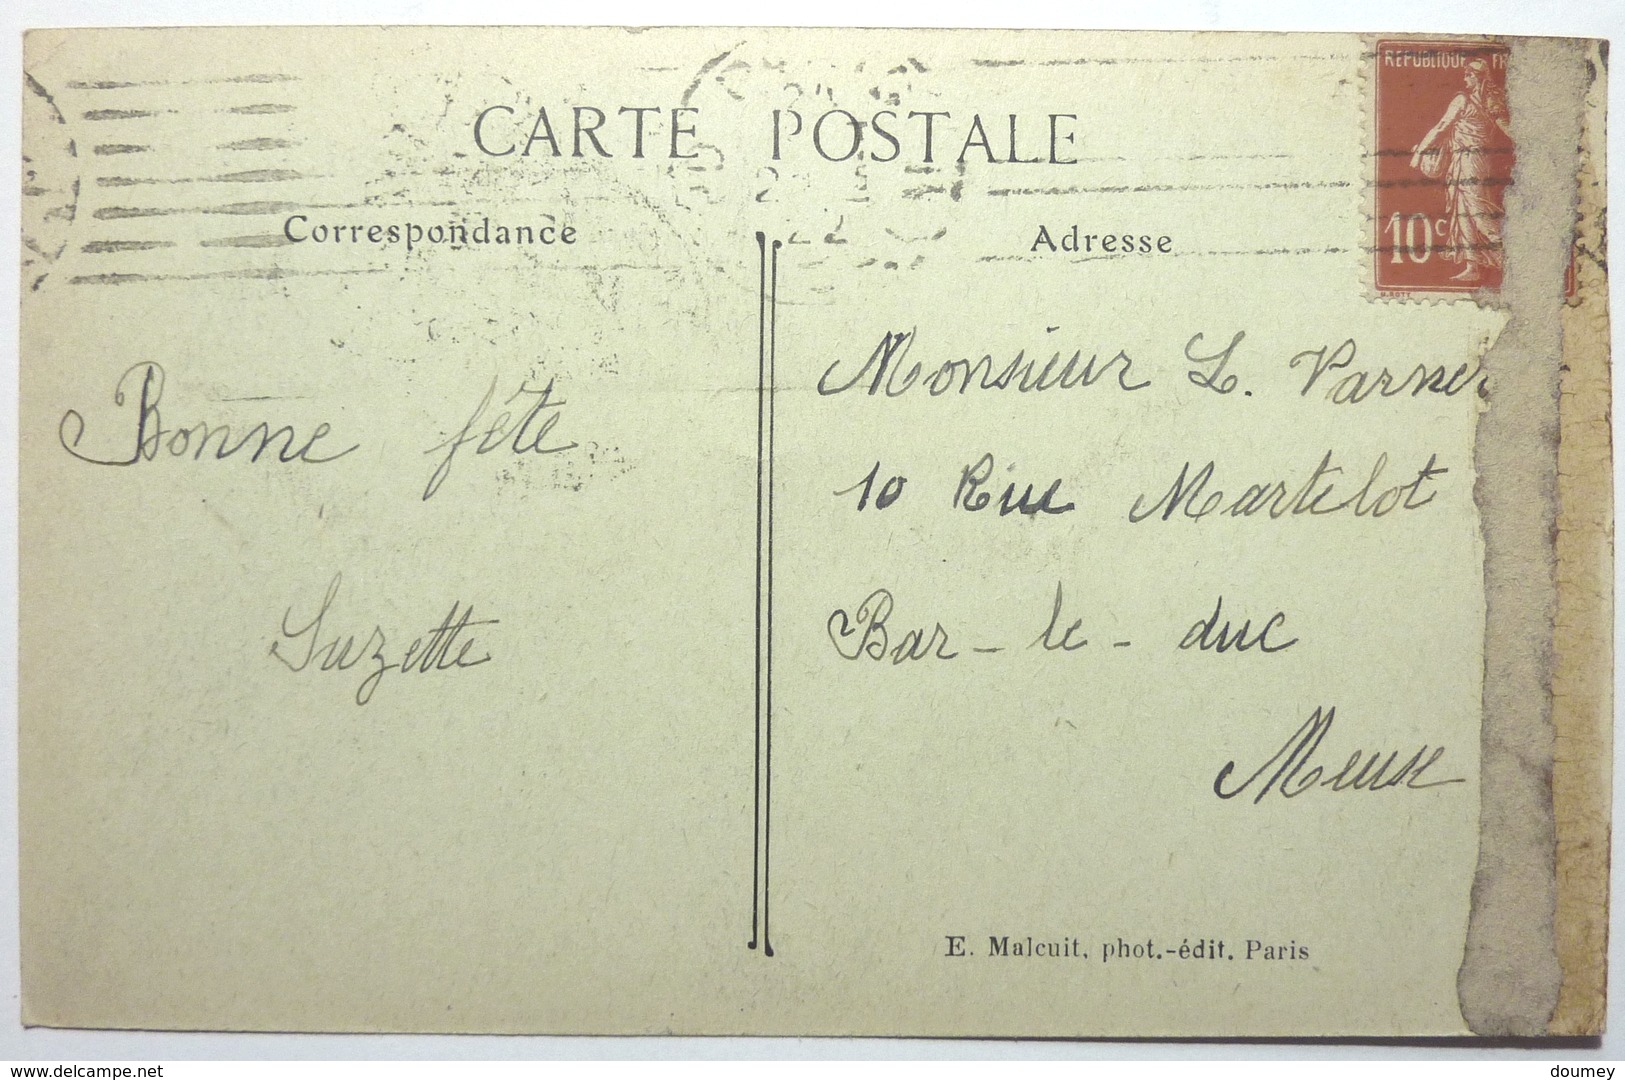 CARTE POSTALE
Correspondance
Adresse
REPUBLIQUE FR
10 c
Bonne fête
Suzette
Monsieur L. Varner
10 Rue Martelot
Bar-le-duc
Meuse
E. Malcuit, phot.-édit. Paris
delcampe.net
doumey